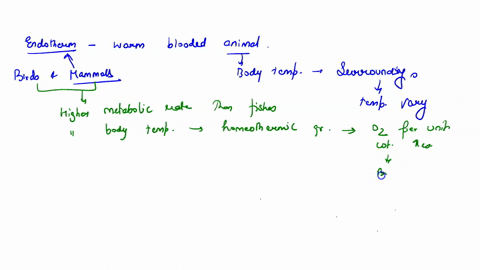 Endotherm - warm blooded animal.
Birds & Mammals Body temp. → Surroundings
temp. vary
Higher metabolic rate than fishes
" body temp. → homeothermic gr. → O2 per unit
cat. rxn